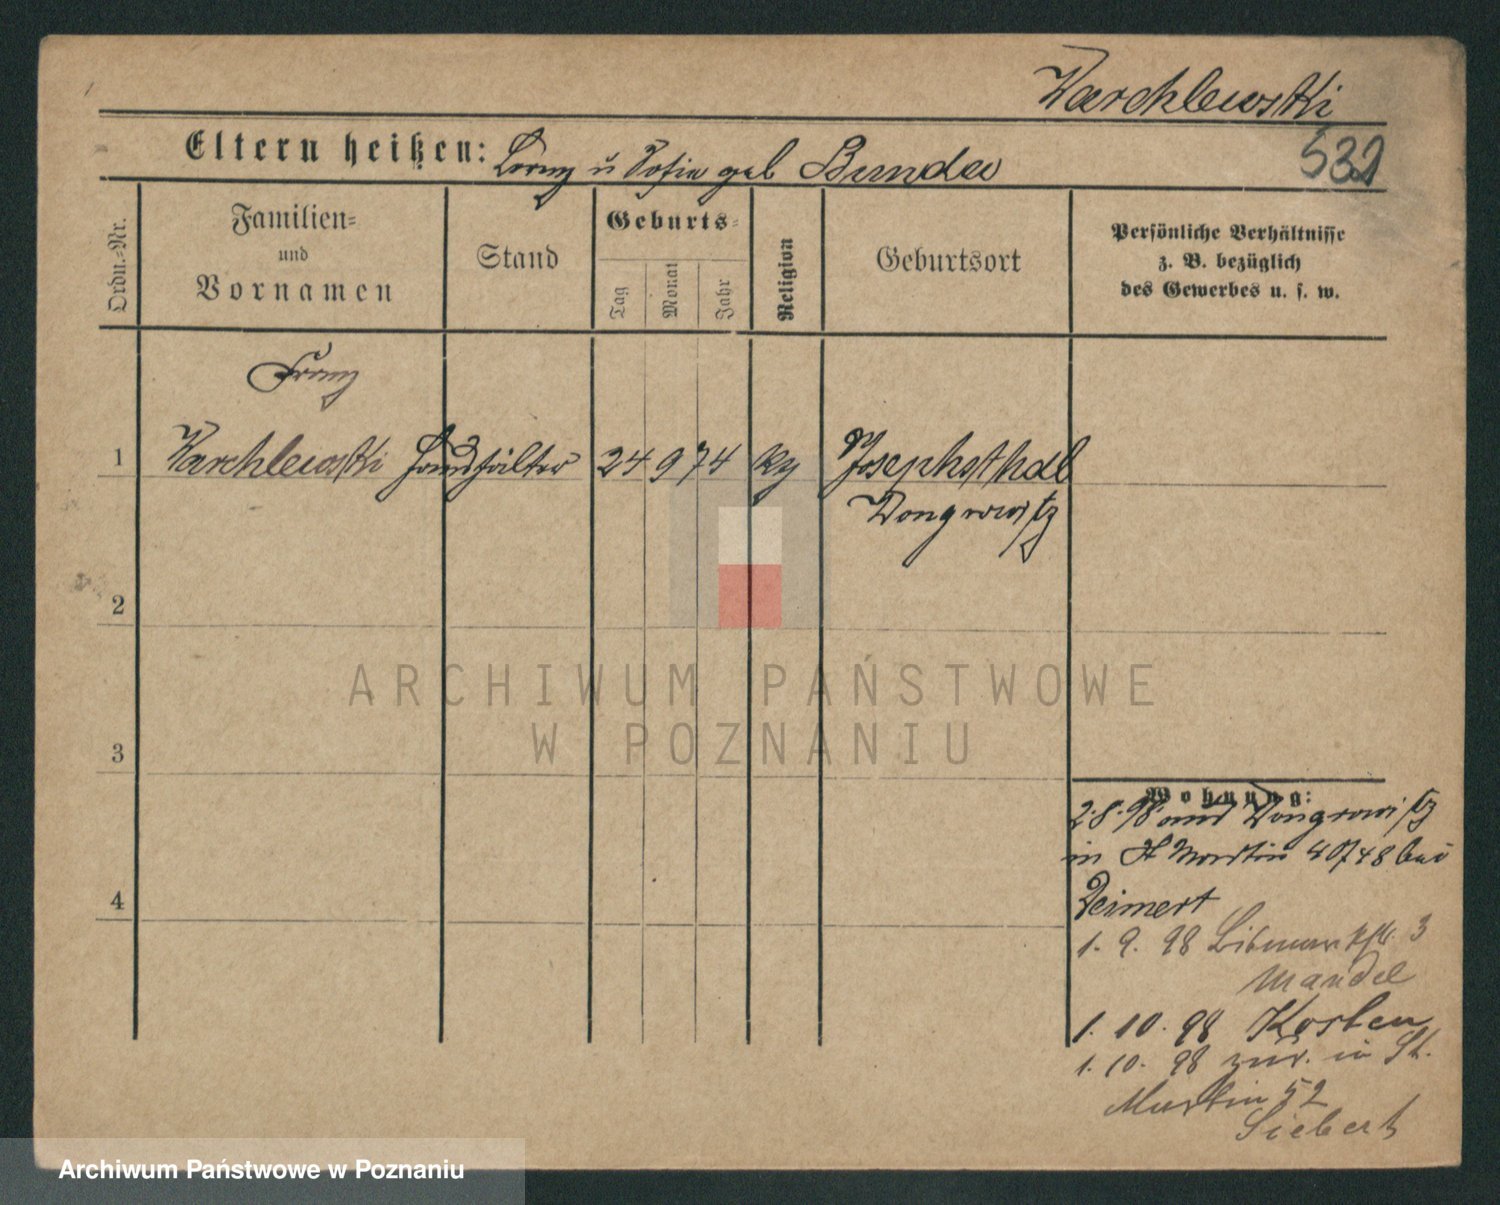 Warchlewski
Eltern heißen: Franz u Sofia geb Bunda
532
Ordn.-Nr.
Familien-
und
Vornamen
Stand
Geburts-
Tag
Monat
Jahr
Religion
Geburtsort
Persönliche Verhältnisse
z. B. bezüglich
des Gewerbes u. s. w.
Franz
1 Warchlewski 24 9 74 Josephsthal
Wongrowitz
2
3
4
Wohnung:
2.8.98 aus Wongrowitz
in St Martin bei
1. 9. 98 3
Mandel
1. 10. 98 Kosten
1. 10. 98 zur. in St.
Martin 52
Siebert
ARCHIWUM PAŃSTWOWE
W POZNANIU
Archiwum Państwowe w Poznaniu